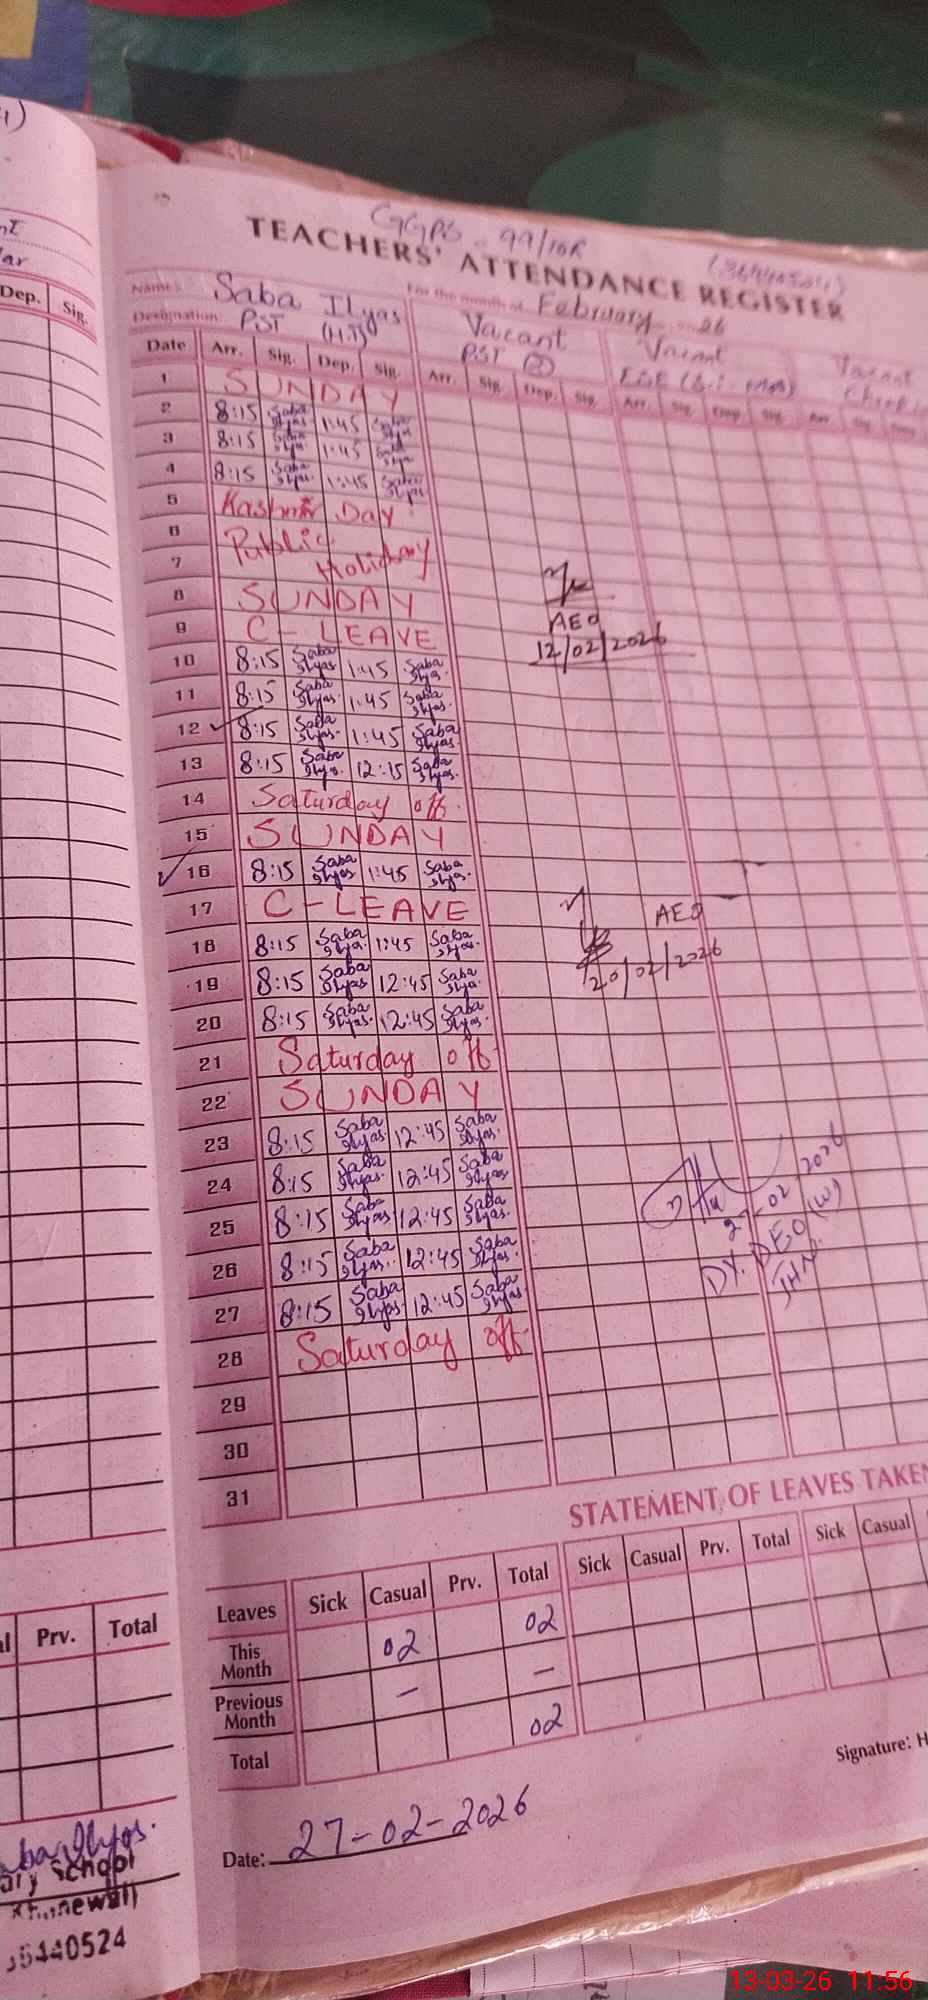 GGPS - 99/10R
TEACHERS' ATTENDANCE REGISTER
Name: Saba Ilyas For the month of February 26
Designation: PST (H.T) Vacant PST Vacant Vacant
Date Arr. Sig. Dep. Sig. Arr. Sig. Dep. Sig. Arr. Sig. Dep. Sig. Arr. Sig.
1 SUNDAY
2 8:15 Saba Ilyas 1:45 Saba Ilyas
3 8:15 Saba Ilyas 1:45 Saba Ilyas
4 8:15 Saba Ilyas 1:45 Saba Ilyas
5 Kashmir Day
6 Public
7 Holiday
8 SUNDAY
9 C-LEAVE
10 8:15 Saba Ilyas 1:45 Saba Ilyas
11 8:15 Saba Ilyas 1:45 Saba Ilyas
12 8:15 Saba Ilyas 1:45 Saba Ilyas
13 8:15 Saba Ilyas 12:15 Saba Ilyas
14 Saturday off
15 SUNDAY
16 8:15 Saba Ilyas 1:45 Saba Ilyas
17 C-LEAVE
18 8:15 Saba Ilyas 1:45 Saba Ilyas
19 8:15 Saba Ilyas 12:45 Saba Ilyas
20 8:15 Saba Ilyas 12:45 Saba Ilyas
21 Saturday off
22 SUNDAY
23 8:15 Saba Ilyas 12:45 Saba Ilyas
24 8:15 Saba Ilyas 12:45 Saba Ilyas
25 8:15 Saba Ilyas 12:45 Saba Ilyas
26 8:15 Saba Ilyas 12:45 Saba Ilyas
27 8:15 Saba Ilyas 12:45 Saba Ilyas
28 Saturday off
29
30
31
AEO
12/02/2026
AEO
20/02/2026
02 2026
DY. DEO (W)
STATEMENT OF LEAVES TAKEN
Leaves Sick Casual Prv. Total Sick Casual Prv. Total Sick Casual
This Month 02 02
Previous Month — —
Total 02
Signature: H
Date: 27-02-2026
Dep. Sig.
Prv. Total
School
440524
13-03-26 11:56